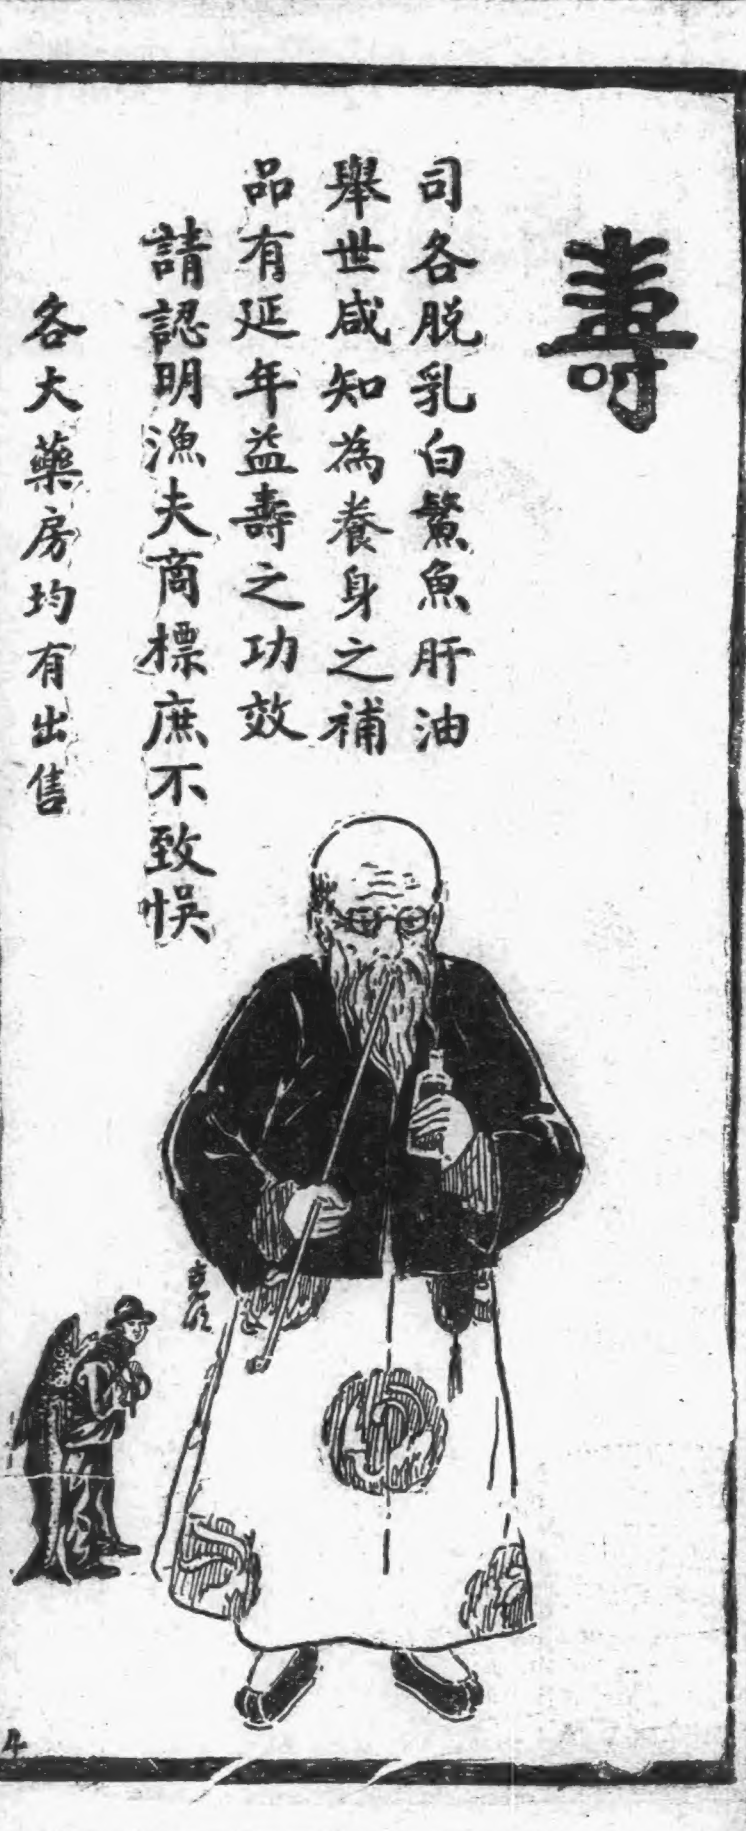 壽
司各脫乳白鰵魚肝油
舉世咸知為養身之補
品有延年益壽之功效
請認明漁夫商標庶不致悞
各大藥房均有出售
4